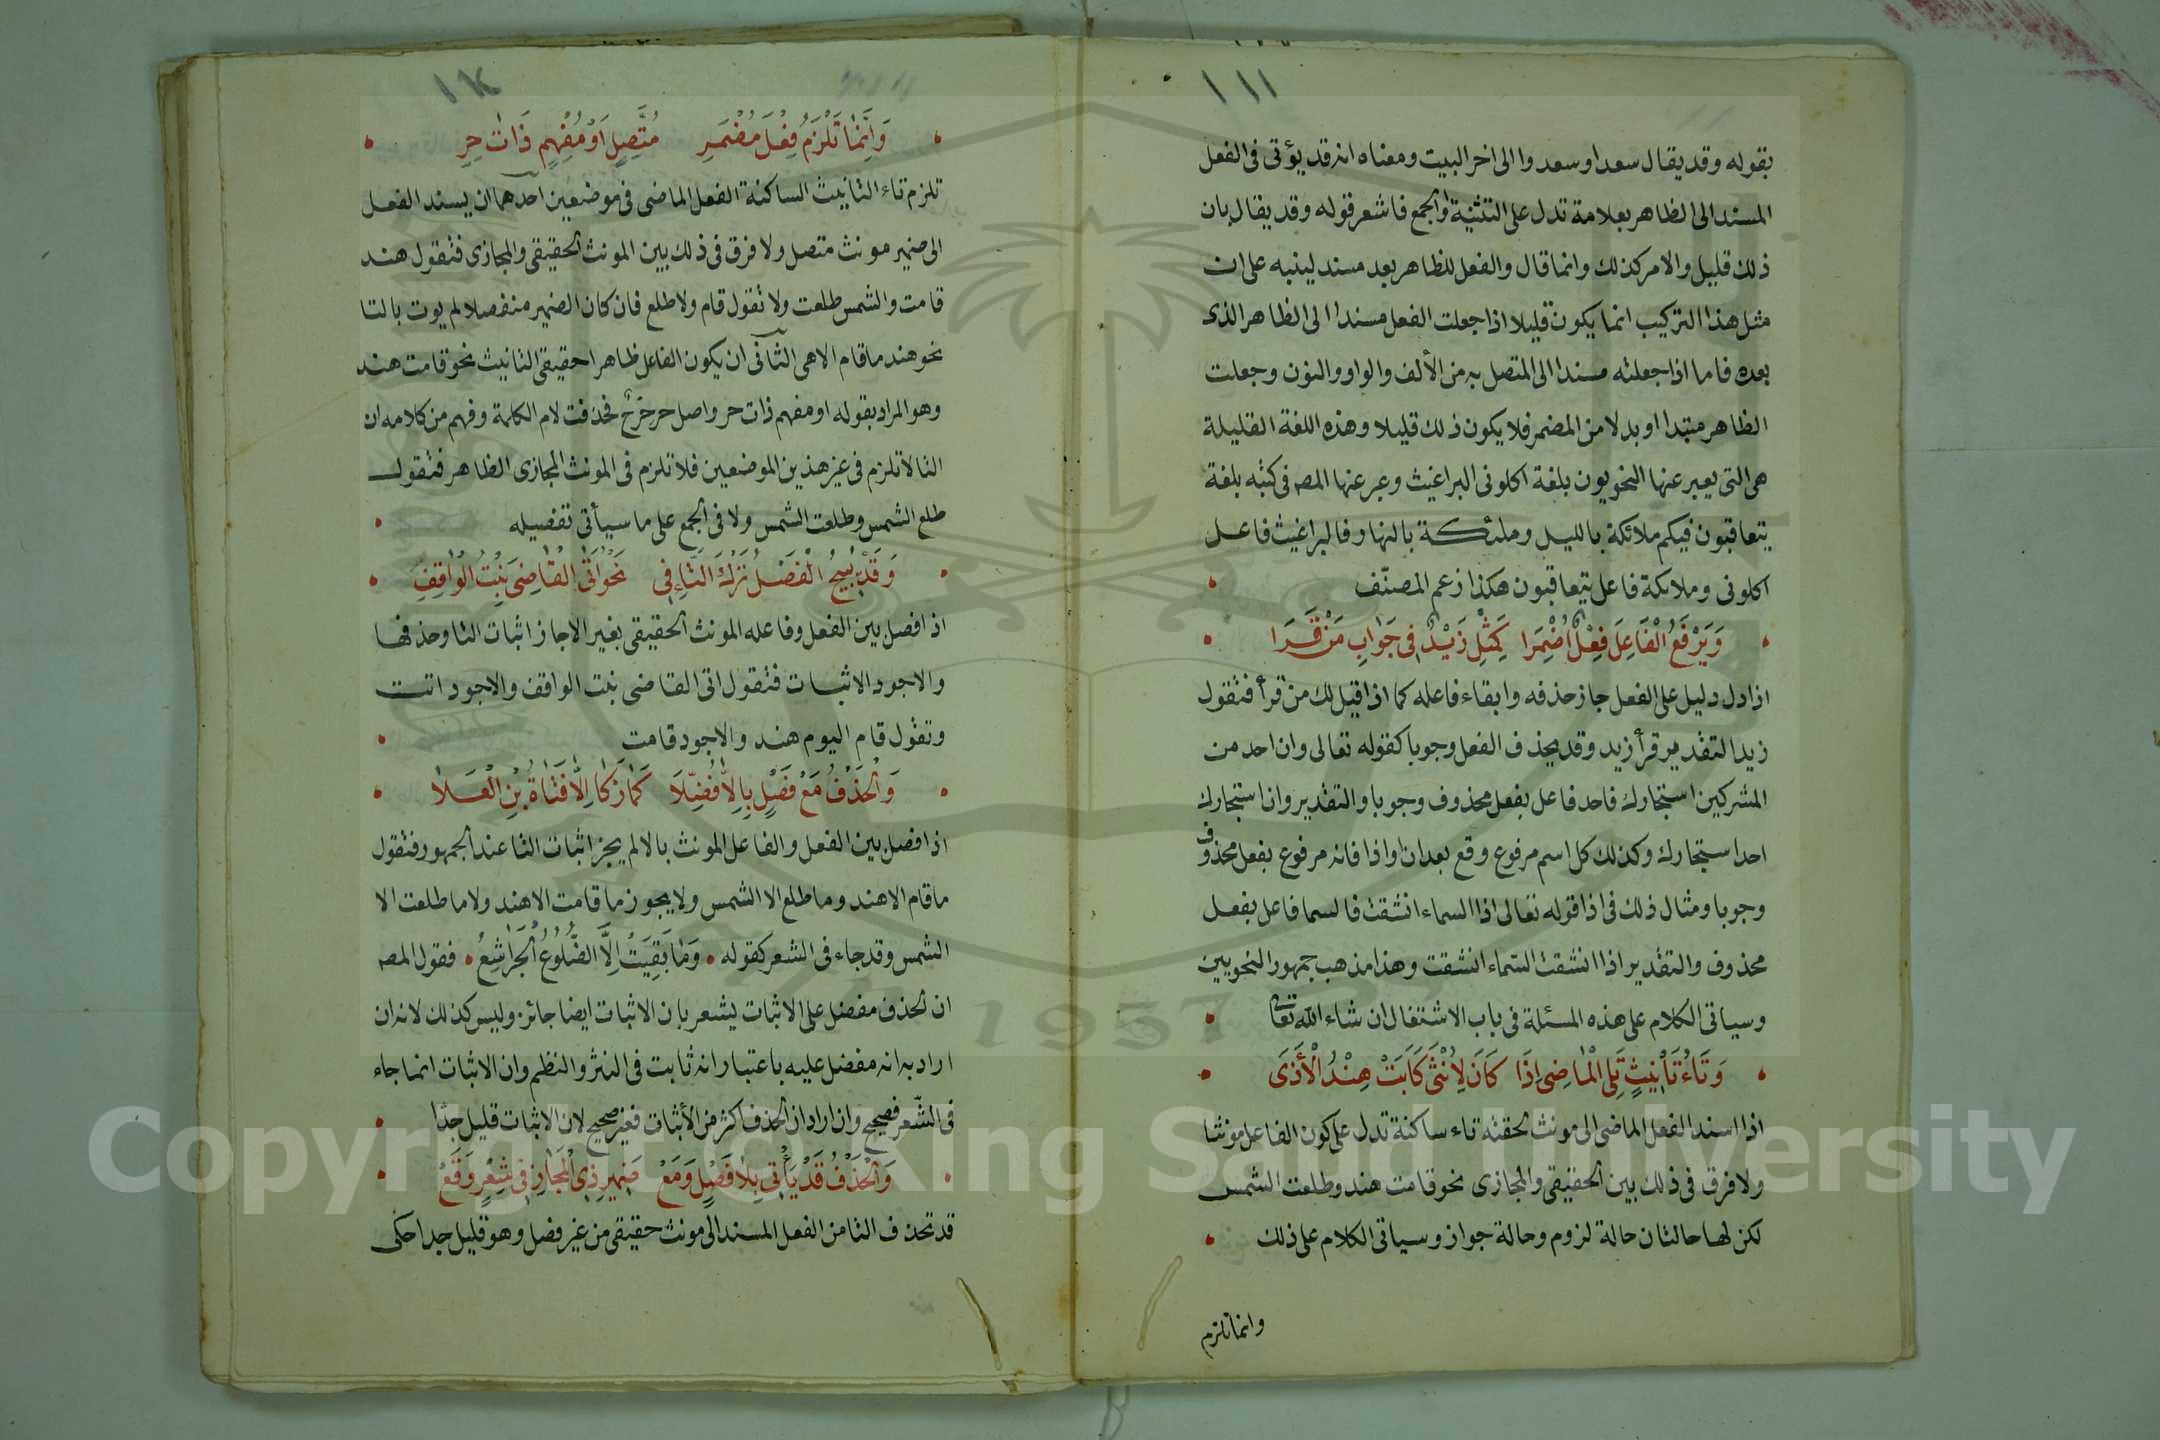 ١١١
بقوله وقد يقال سعدا وسعدوا الى اخر البيت ومعناه انه قد يؤتى فى الفعل
المسند الى الظاهر بعلامة تدل على التثنية والجمع فاشعر قوله وقد يقال بان
ذلك قليل والامر كذلك وانما قال والفعل للظاهر بعد مسند لينبه على ان
مثل هذا التركيب انما يكون قليلا اذا جعلت الفعل مسندا الى الظاهر الذى
بعده فاما اذا جعلته مسندا الى المتصل به من الألف والواو والنون وجعلت
الظاهر مبتدا او بدلا من المضمر فلا يكون ذلك قليلا وهذه اللغة القليلة
هى التى يعبر عنها النحويون بلغة اكلونى البراغيث وعبر عنها المصه فى كتبه بلغة
يتعاقبون فيكم ملائكة بالليل وملئكة بالنهار فالبراغيث فاعل
اكلونى وملائكة فاعل يتعاقبون هكذا زعم المصنّف
وَيَرْفَعُ الْفَاعِلَ فِعْلٌ اُضْمِرَا كَمِثْلِ زَيْدٌ فِى جَوَابِ مَنْ قَرَا
اذا دل دليل على الفعل جاز حذفه وابقاء فاعله كما اذا قيل لك من قرأ فتقول
زيد التقدير قرأ زيد وقد يحذف الفعل وجوبا كقوله تعالى وان احد من
المشركين استجارك فاحد فاعل بفعل محذوف وجوبا والتقدير وان استجارك
احد استجارك وكذلك كل اسم مرفوع وقع بعد ان او اذا فانه مرفوع بفعل محذوف
وجوبا ومثال ذلك فى اذا قوله تعالى اذا السماء انشقت فالسما فاعل بفعل
محذوف والتقدير اذا انشقت السّماء انشقت وهذا مذهب جمهور النحويين
وسياتى الكلام على هذه المسئلة فى باب الاشتغال ان شاء الله تعالى
وَتَاءُ تَأْنِيثٍ تَلِى الْمَاضِى اِذَا كَانَ لِاُنْثَى كَابَتْ هِنْدُ الْأَذَى
اذا اسند الفعل الماضى الى مونث لحقته تاء ساكنة تدل على كون الفاعل مونثا
ولا فرق فى ذلك بين الحقيقى والمجازى نحو قامت هند وطلعت الشمس
لكن لها حالتان حالة لزوم وحالة جواز وسياتى الكلام على ذلك
وانما تلزم
وَاِنَّمَا تَلْزَمُ فِعْلَ مُضْمَرِ مُتَّصِلٍ اَوْ مُفْهِمٍ ذَاتَ حِرِ
تلزم تاء التانيث الساكنة الفعل الماضى فى موضعين احدهما ان يسند الفعل
الى ضمير مونث متصل ولا فرق فى ذلك بين المونث الحقيقى والمجازى فتقول هند
قامت والشمس طلعت ولا تقول قام ولا طلع فان كان الضمير منفصلا لم يوت بالتا
نحو هند ما قام الا هى الثانى ان يكون الفاعل ظاهرا حقيقى التانيث نحو قامت هند
وهو المراد بقوله او مفهم ذات حر واصل حر حَرَحٌ فحذفت لام الكلمة وفهم من كلامه ان
التا لا تلزم فى غير هذين الموضعين فلا تلزم فى المونث المجازى الظاهر فتقول
طلع الشمس وطلعت الشمس ولا فى الجمع على ما سيأتى تفصيله
وَقَدْ يُبِيحُ الْفَصْلُ تَرْكَ التَّاءِ فِى نَحْوِ اَتَى الْقَاضِىَ بِنْتُ الْوَاقِفِ
اذا فصل بين الفعل وفاعله المونث الحقيقى بغير الا جاز اثبات التا وحذفها
والاجود الاثبات فتقول اتى القاضى بنت الواقف والاجود اتت
وتقول قام اليوم هند والاجود قامت
وَالْحَذْفُ مَعْ فَصْلٍ بِاِلَّا فُضِّلَا كَمَا زَكَا اِلَّا فَتَاةُ ابْنِ الْعَلَا
اذا فصل بين الفعل والفاعل المونث بالا لم يجز اثبات التا عند الجمهور فتقول
ما قام الا هند وما طلع الا الشمس ولا يجوز ما قامت الا هند ولا ما طلعت الا
الشمس وقد جاء فى الشعر كقوله وَمَا بَقِيَتْ اِلَّا الضُّلُوعُ الْجَرَاشِعُ فقول المصه
ان الحذف مفضل على الاثبات يشعر بان الاثبات ايضا جائز وليس كذلك لانه ان
اراد به انه مفضل عليه باعتبار انه ثابت فى النثر والنظم وان الاثبات انما جاء
فى الشّعر فصحيح وان اراد ان الحذف اكثر من الأثبات فغير صحيح لان الاثبات قليل جدّا
وَالْحَذْفُ قَدْ يَأْتِى بِلَا فَصْلٍ وَمَعْ ضَمِيرِ ذِى الْمَجَازِ فِى شِعْرٍ وَقَعْ
قد تحذف التا من الفعل المسند الى مونث حقيقى من غير فصل وهو قليل جدا حكى
1957
Copyright © King Saud University